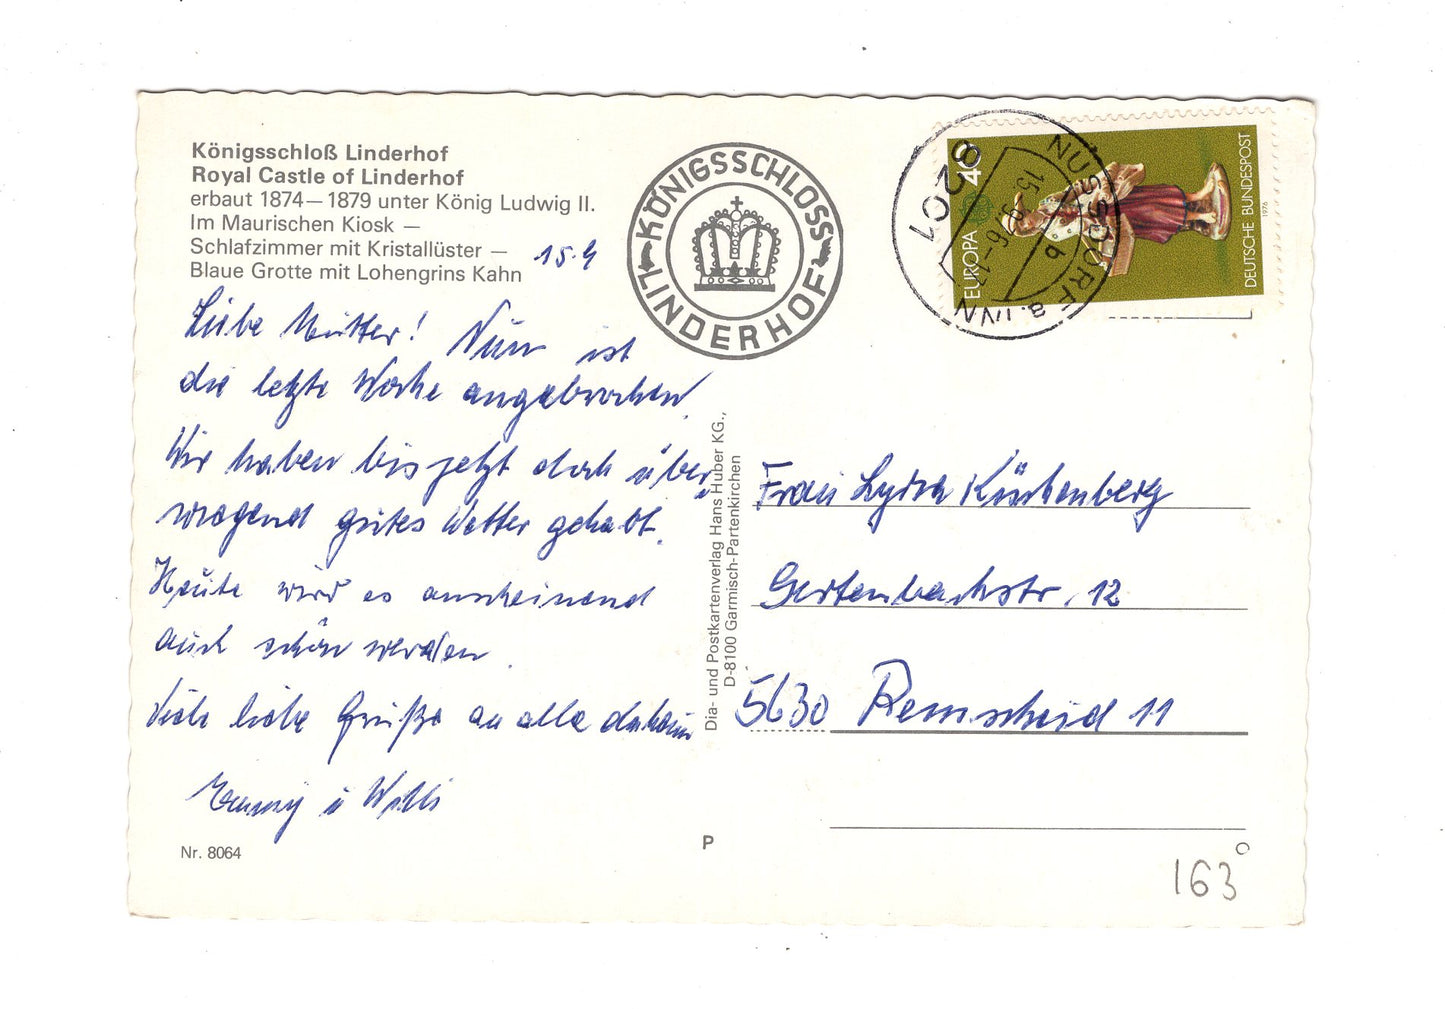 Königsschloß Linderhof
Royal Castle of Linderhof
erbaut 1874—1879 unter König Ludwig II.
Im Maurischen Kiosk —
Schlafzimmer mit Kristallüster —
Blaue Grotte mit Lohengrins Kahn
15.9
KÖNIGSSCHLOSS
LINDERHOF
Liebe Mutter! Nun ist
die letzte Woche angebrochen.
Wir haben bis jetzt doch über
wiegend gutes Wetter gehabt.
Heute wird es anscheinend
auch schön werden.
Viele liebe Grüße an alle daheim
u Willi
Nr. 8064
Dia- und Postkartenverlag Hans Huber KG.,
D-8100 Garmisch-Partenkirchen
P
8201
NUSSDORF a. INN
15.-9.
b
EUROPA 40
DEUTSCHE BUNDESPOST
1976
Frau Lydia Küchenberg
Gertenbachstr. 12
5630 Remscheid 11
163